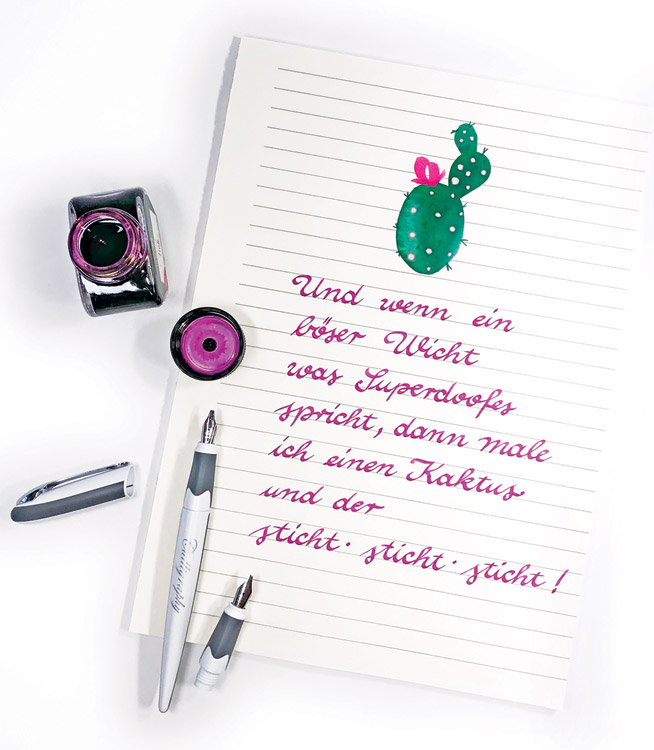 Und wenn ein
böser Wicht
was Superdoofes
spricht, dann male
ich einen Kaktus
und der
sticht · sticht · sticht!
Calligraphy